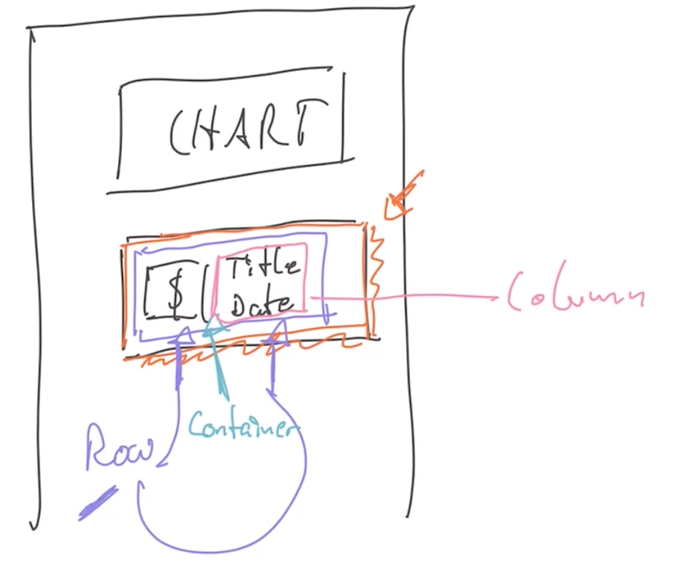 CHART
$
Title
Date
Column
Container
Row